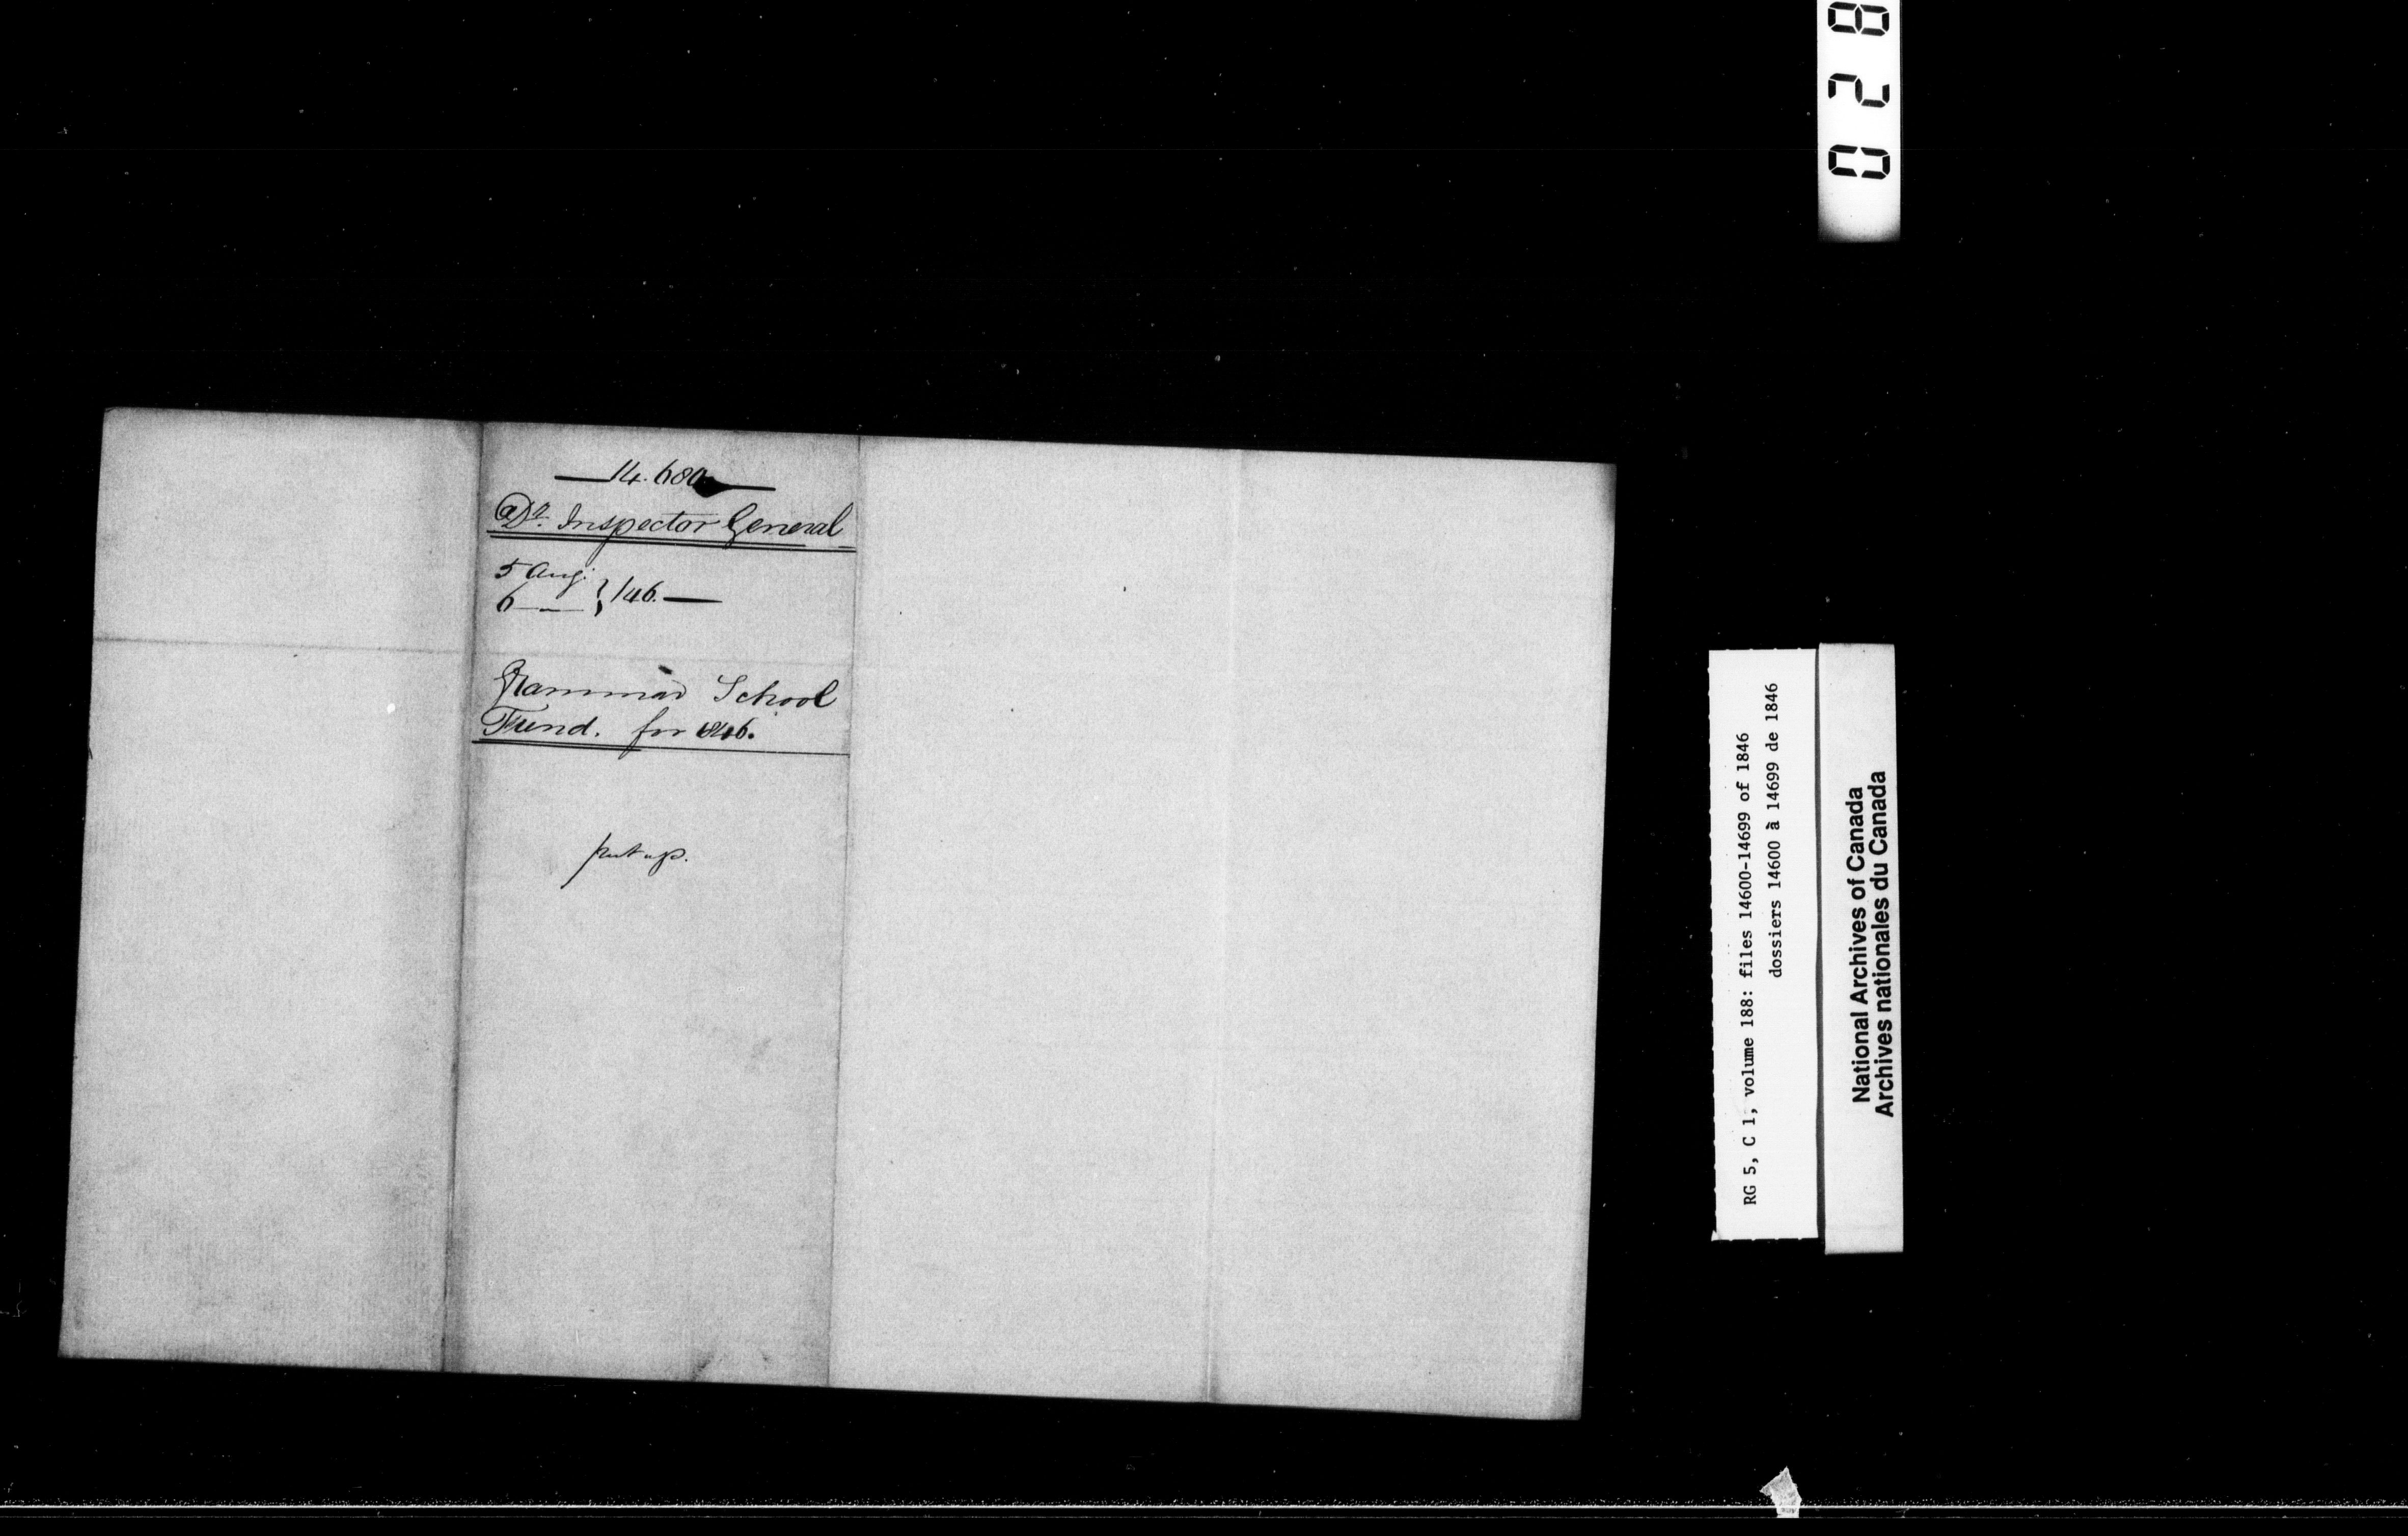 14.680
Dy. Inspector General
5 Aug.
6 — } /46.
Grammar School
Fund. for 1846.
put up.
028
RG 5, C 1, volume 188: files 14600-14699 of 1846
dossiers 14600 à 14699 de 1846
National Archives of Canada
Archives nationales du Canada